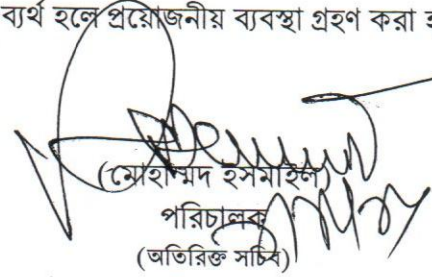 ব্যর্থ হলে প্রয়োজনীয় ব্যবস্থা গ্রহণ করা
(মোহাম্মদ ইসমাইল)
পরিচালক
(অতিরিক্ত সচিব)